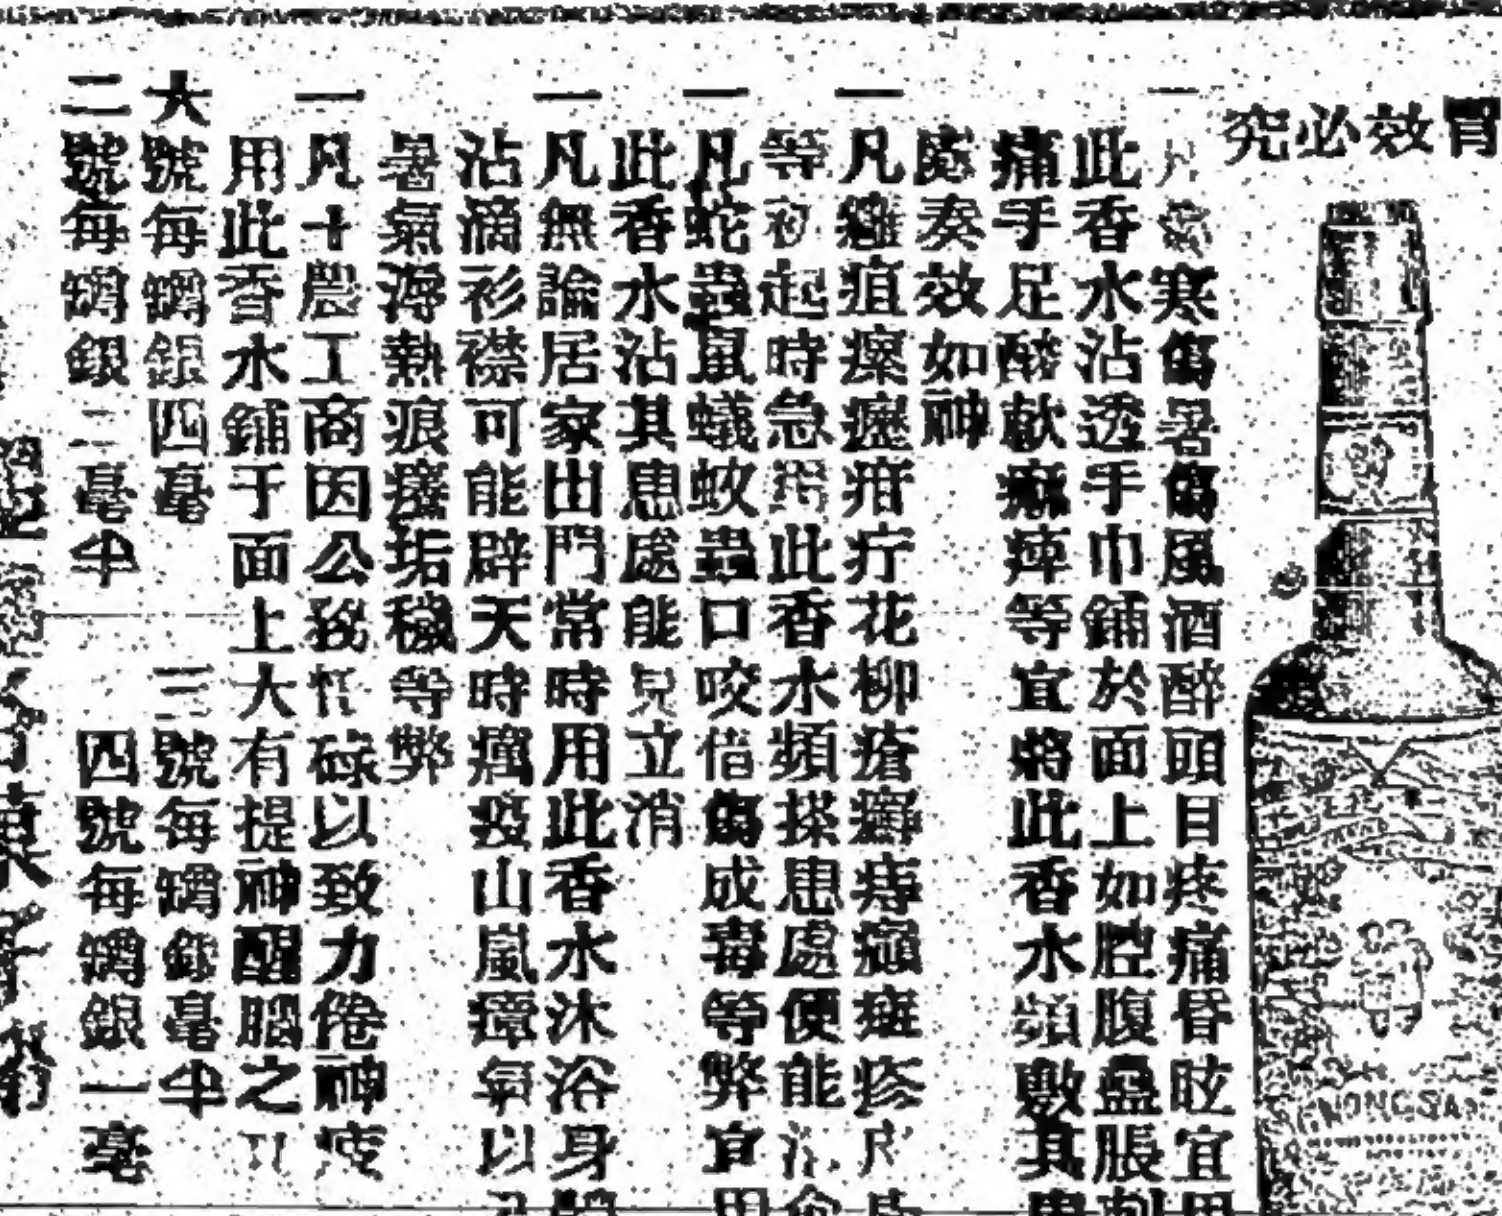 冒效必究
一凡感寒傷暑傷風酒醉頭目疼痛昏眩宜用
此香水沾透手巾鋪於面上如腔腹蠱脹刺
痛手足酸軟痲痺等宜將此香水頻敷其患
處奏效如神
一凡癰疽瘰癧疳疔花柳瘡癬痔癲斑疹皮
等初起時急用此香水頻搽患處便能消
一凡蛇蟲鼠蟻蚊蟲口咬俉傷成毒等弊宜用
此香水沾其患處能見立消
一凡無論居家出門常時用此香水沐浴身體
沾滴衫襟可能辟天時癘疫山嵐瘴氣以及
暑氣溽熱痕癢垢穢等弊
一凡士農工商因公務忙碌以致力倦神疲
用此香水鋪于面上大有提神醒腦之功
大號每罇銀四毫 三號每罇銀毫半
二號每罇銀二毫半 四號每罇銀一毫